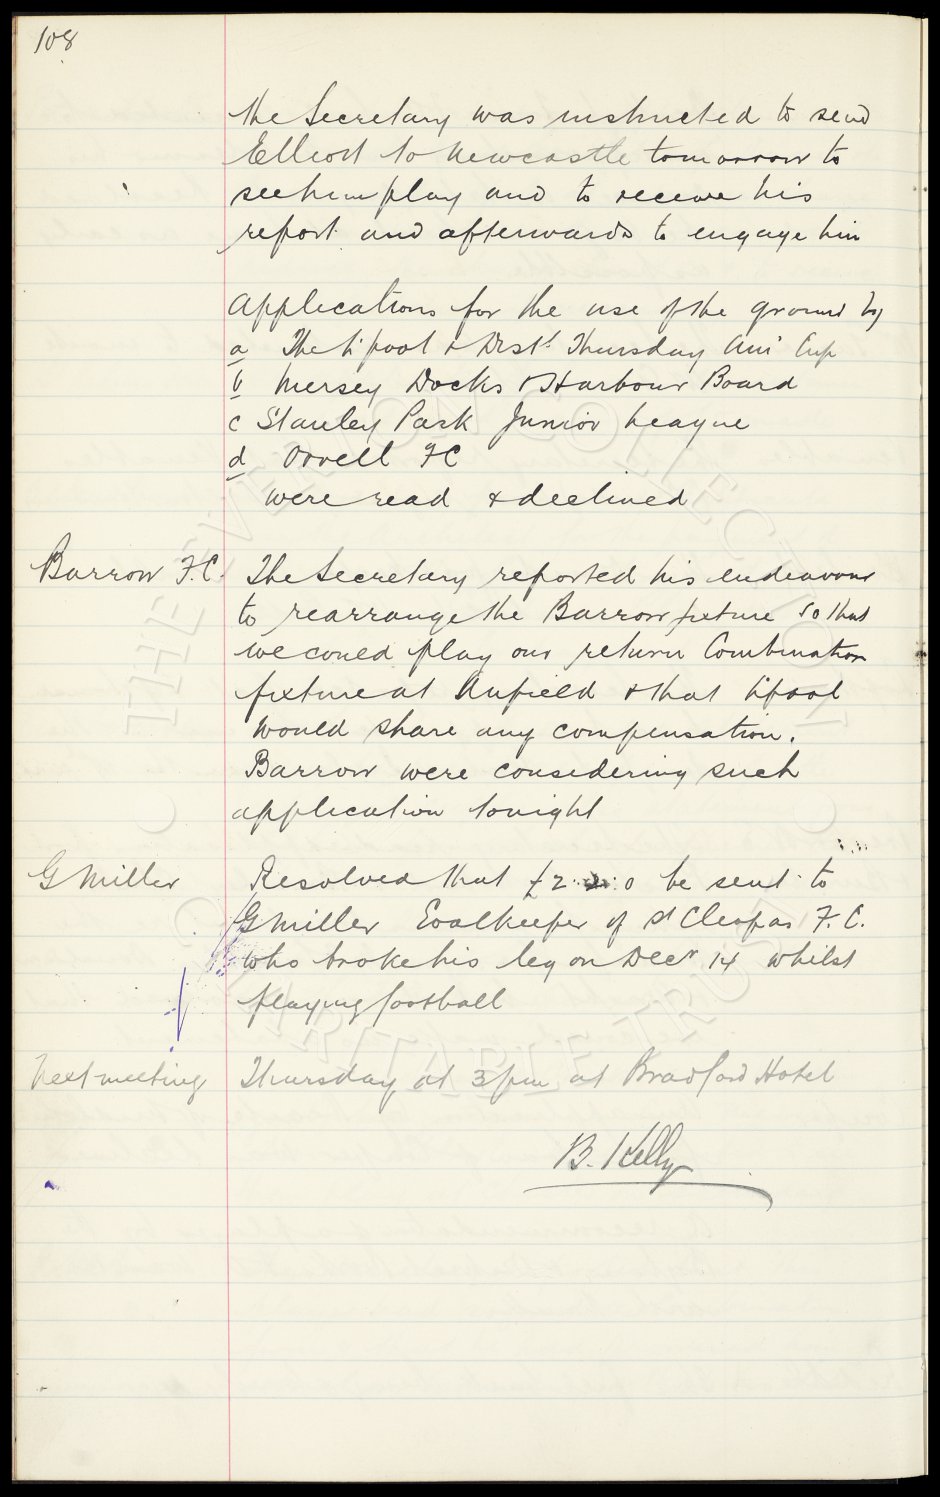 108
the Secretary was instructed to send
Elliott to Newcastle tomorrow to
see him play and to receive his
report and afterwards to engage him
Applications for the use of the ground by
a The L'pool & Dist. Thursday Am' Cup
b Mersey Docks & Harbour Board
c Stanley Park Junior League
d Orrell FC
were read & declined
Barrow F.C. The Secretary reported his endeavour
to rearrange the Barrow fixture so that
we could play our return Combination
fixture at Anfield & that L'pool
would share any compensation.
Barrow were considering such
application tonight
G Miller Resolved that £2. 2. 0 be sent to
G Miller Goalkeeper of St Cleopas F.C.
who broke his leg on Decr 14 whilst
playing football
Next meeting Thursday at 3 pm at Bradford Hotel
B. Kelly
THE EVERTON COLLECTION
CHARITABLE TRUST